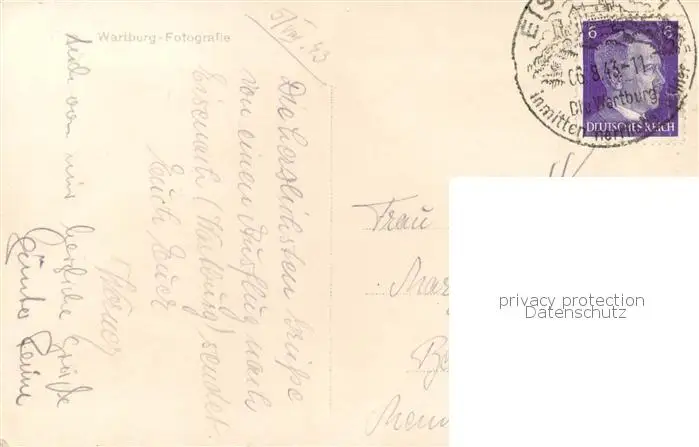 Wartburg-Fotografie
5/VIII. 43
Die herzlichsten Grüße
von einem Ausflug nach
Eisenach (Wartburg) sendet
Euch Euer
Werner
Auch von mir herzliche Grüße
6
6
EIS
06.8.43-11
Die Wartburg
inmitten
DEUTSCHES REICH
Frau
privacy protection
Datenschutz